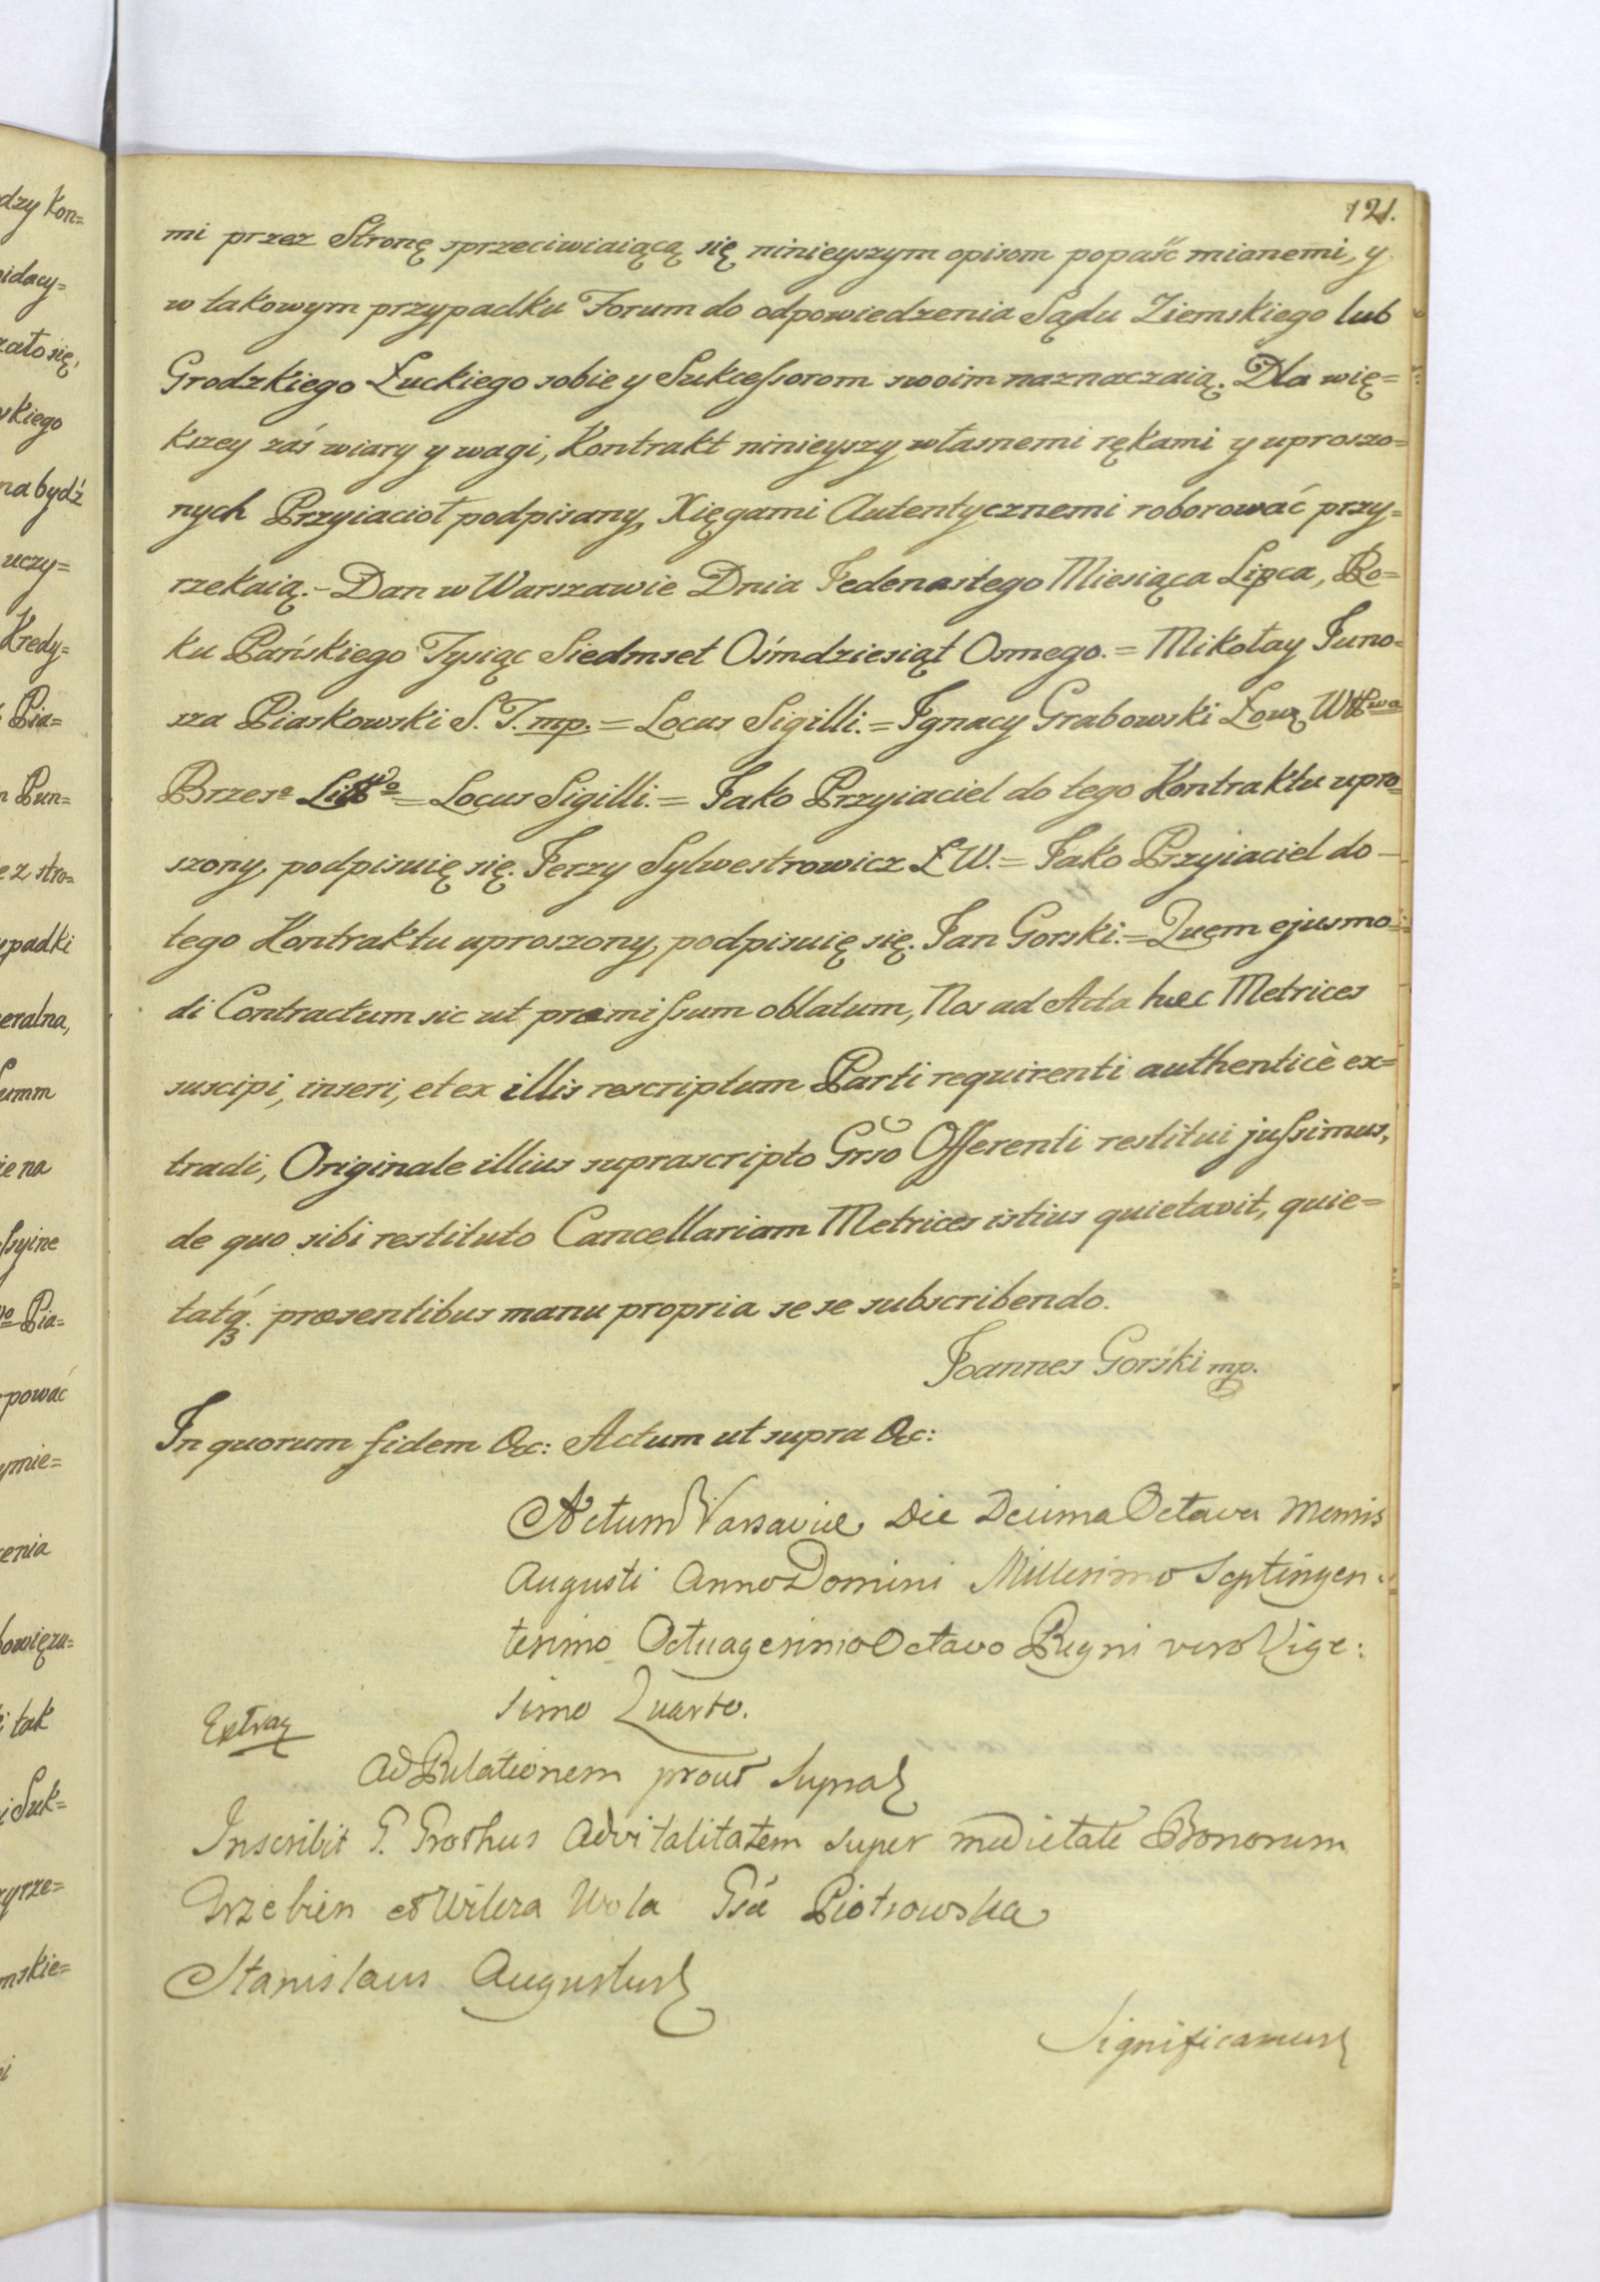 121.
mi przez Stronę sprzeciwiaiącą się ninieyszym opisom popaść mianemi, y
w takowym przypadku Forum do odpowiedzenia Sądu Ziemskiego lub
Grodzkiego Łuckiego sobie y Sukcessorom swoim naznaczaią. Dla wię=
kszey zaś wiary y wagi, Kontrakt ninieyszy własnemi rękami y uproszo=
nych Przyiacioł podpisany, Xięgami Autentycznemi roborować przy=
rzekaią.- Dan w Warszawie Dnia Jedenastego Miesiąca Lipca, Ro=
ku Pańskiego Tysiąc Siedmset Ośmdziesiąt Osmego. = Mikołay Juno=
sza Piaskowski S. T. mp. = Locus Sigilli. = Ignacy Grabowski Łowz Wttwa
Brzesº Littº = Locus Sigilli. = Jako Przyiaciel do tego Kontraktu upro=
szony, podpisuię się. Jerzy Sylwestrowicz Ł W. = Jako Przyiaciel do
tego Kontraktu uproszony, podpisuię się. Jan Gorski. = Quem ejusmo=
di Contractum sic ut præmissum oblatum, Nos ad Acta hæc Metrices
suscipi, inseri, et ex illis rescriptum Parti requirenti authenticè ex=
tradi, Originale illius suprascripto Grso Offerenti restitui jussimus,
de quo sibi restituto Cancellariam Metrices istius quietavit, quie=
tatq. præsentibus manu propria se se subscribendo.
Joannes Gorski mp.
In quorum fidem &c: Actum ut supra &c:
Actum Varsaviæ Die Decima Octava Mensis
Augusti Anno Domini Millesimo Septingen:
tesimo Octuagesimo Octavo Regni vero Vige:
simo Quarto.
Extrax
Ad Relationem prout Supra
Inscribit G. Grothus Advitalitatem super medietate Bonorum
Grzebien et Wilcza Wola Gsæ Piotrowska
Stanislaus Augustus
Significamus
dzy Kon=
idacy=
zało się,
skiego
na bydź
uczy=
Kredy=
Pia=
Pun=
ez stro=
ypadki
eralna,
umm
ie na
Pia=
pować
ymie=
enia
bowięzu=
i tak
i Suk=
zyrze=
mskie=